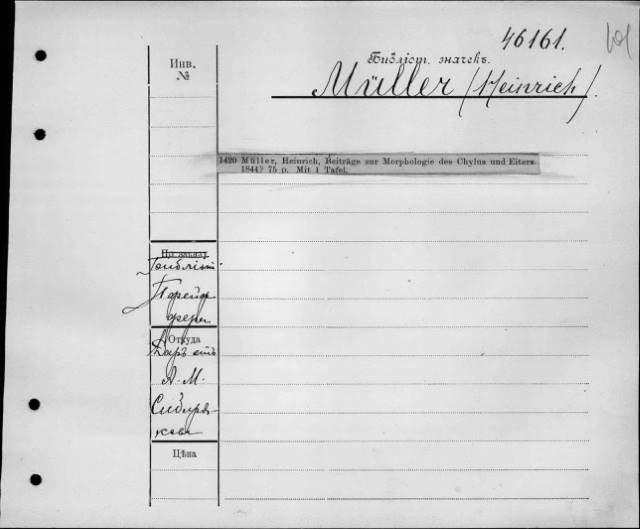 46161.
Библіот. значекъ.
Инв.
№
Müller (Heinrich).
1420 Müller, Heinrich, Beiträge zur Morphologie des Chylus und Eiters.
1844? 75 p. Mit 1 Tafel.
По заказу
Библіот.
Пфейф
фера
Откуда
Даръ отъ
А. М.
Сибиря-
кова
Цѣна